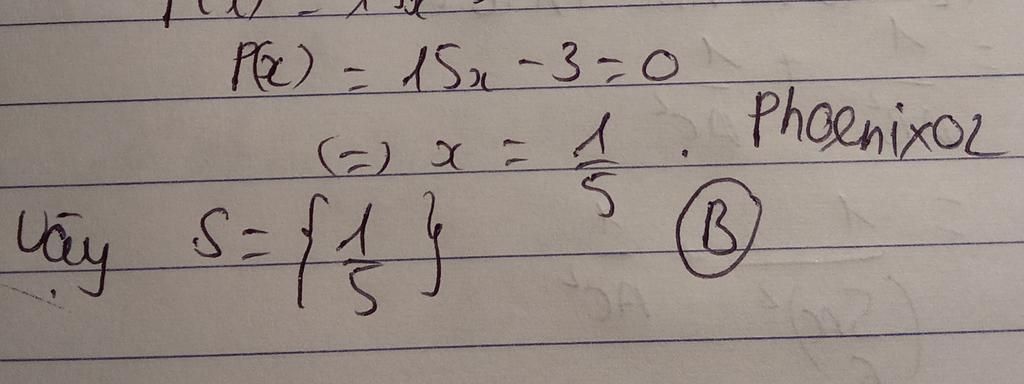 P(x) = 15x - 3 = 0
(=) x = 1/5 . Phoenix02
Vậy S = { 1/5 } B